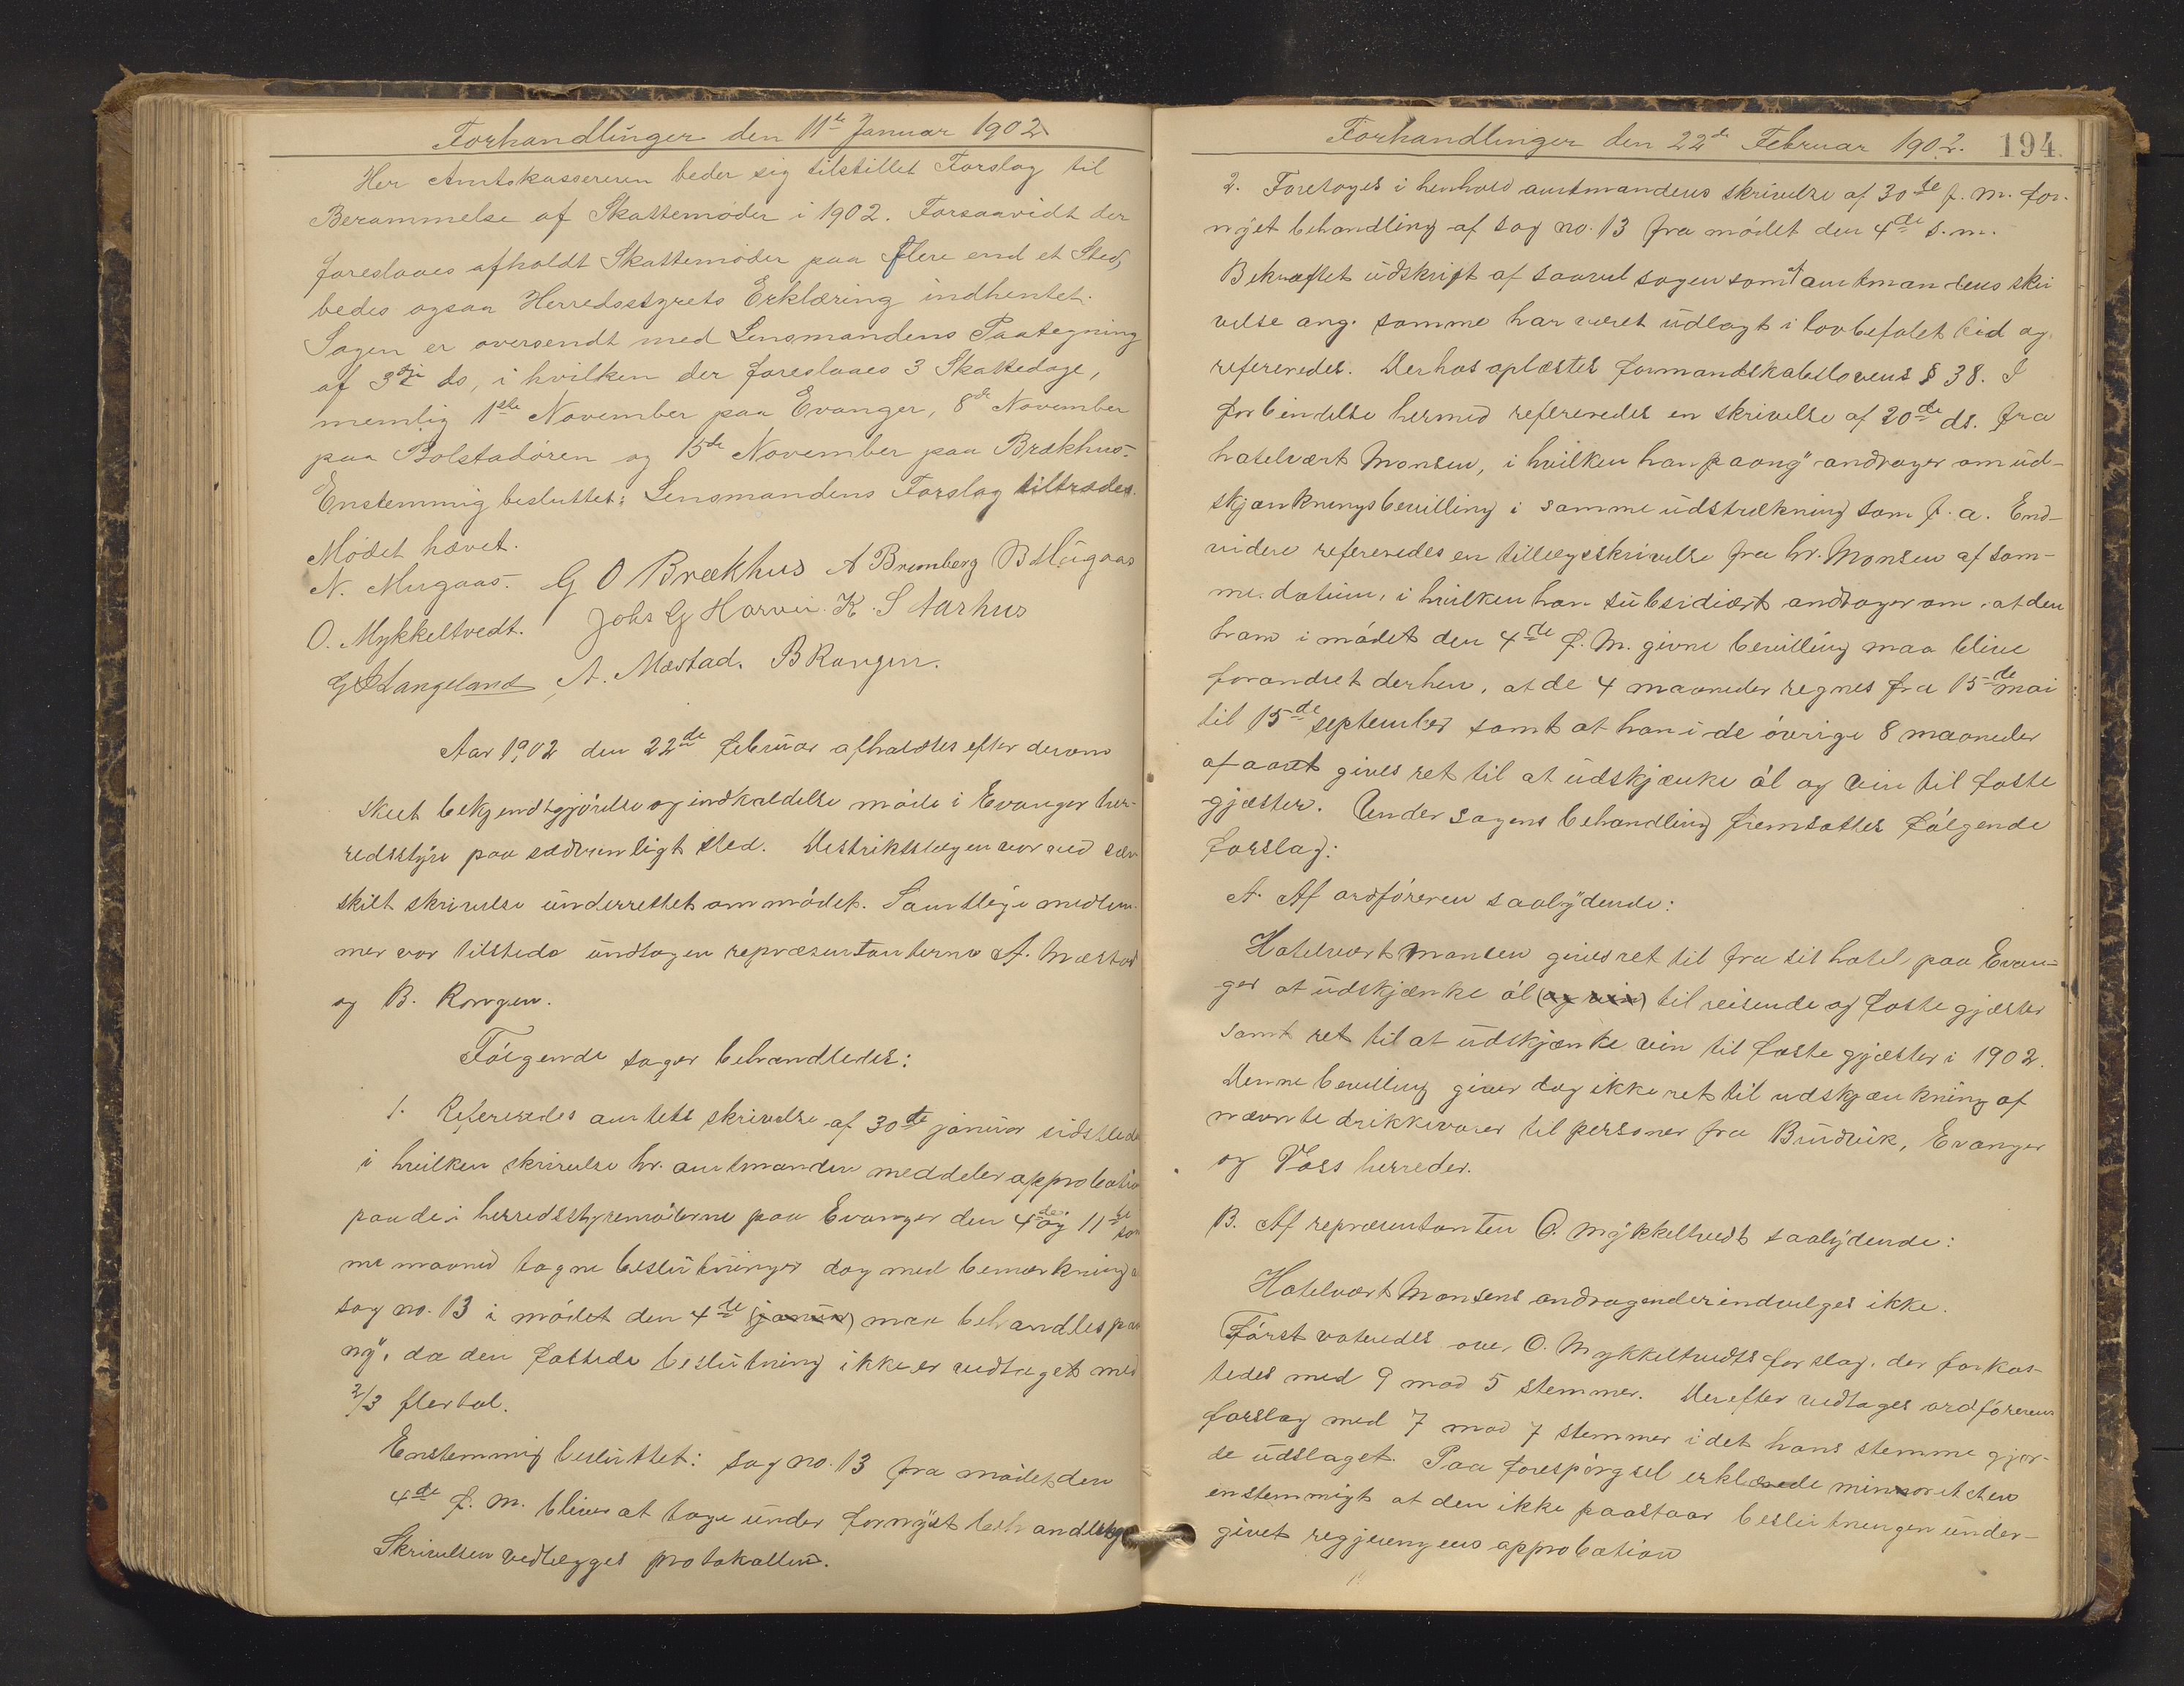 Forhandlinger den 11te Januar 1902
Her Amtskassereren beder sig tilstillet Forslag til
Berammelse af Skattemöder i 1902. Forsaavidt der
foreslaaes afholdt Skattemöder paa flere end et Sted,
bedes ogsaa Herredsstyrets Erklæring indhentet.
Sagen er oversendt med Lensmandens Paategning
af 3die ds, i hvilken der foreslaaes 3 Skattedage,
nemlig 1ste November paa Evanger, 8de November
paa Bolstadören og 15de November paa Brækhus.
Enstemmig besluttet: Lensmandens Forslag tiltrædes.
Mödet hævet.
N. Mugaas. G O Brækhus A Brunborg B Mugaas
O. Mykkeltvedt. Johs G Horvei. K. S Aarhus
G Langeland A. Mæstad. B Rongen.
Aar 1902 den 22de februar afholdtes efter derom
skeet bekjendtgjörelse og indkaldelse möde i Evanger her-
redsstyre paa sædvanligt sted. Destriktslægen var ved sær-
skilt skrivelse underrettet om mödet. Samtlige medlem-
mer var tilstede undtagen repræsentanterne A. Mæstad
og B. Rongen.
Fölgende sager behandledes:
1. Refereredes amtets skrivelse af 30te januar sidstleden
i hvilken skrivelse hr. amtmanden meddeler approbation
paa de i herredsstyremöderne paa Evanger den 4de og 11te sam
me maaned tagne beslutninger dog med bemærkning a
sag no. 13 i mödet den 4de (januar) maa behandles paa
ny, da den fattede beslutning ikke er vedtaget med
2/3 flertal.
Enstemmig besluttet: sag no. 13 fra mödet den
4de f. m. bliver at tage under fornyet behandling
Skrivelsen vedlægges protokollen.
Forhandlinger den 22de Februar 1902. 194.
2. Foretoges i henhold amtmandens skrivelse af 30te f. m. for-
nyet behandling af sag no. 13 fra mödet den 4de s. m.
Bekræftet udskrift af saavel sagen som af amtmandens skri
velse ang. samme har været udlagt i lovbefalet tid og
refereredes. Derhos oplæstes formandskabslovens § 38. I
forbindelse hermed refereredes en skrivelse af 20de ds. fra
hotelvært Monsen, i hvilken han paany andrager om ud-
skjænkningsbevilling i samme udstrækning som f. a. End-
videre refereredes en tillægsskrivelse fra hr. Monsen af sam-
me datum, i hvilken han subsidiært andrager om, at den
ham i mödet den 4de f. m. givne bevilling maa blive
forandret derhen, at de 4 maaneder regnes fra 15de mai
til 15de september samt at han i de övrige 8 maaneder
af aaret gives ret til at udskjænke öl og vin til faste
gjæster. Under sagens behandling fremsattes fölgende
forslag:
A. Af ordföreren saalydende:
Hotelvært Monsen gives ret til fra sit hotel paa Evan-
ger at udskjænke öl (og vin) til reisende og faste gjæster
samt ret til at udskjænke vin til faste gjæster i 1902.
Denne bevilling giver dog ikke ret til udskjænkning af
nævnte drikkevarer til personer fra Brudvik, Evanger
og Voss herreder.
B. Af repræsentanten O. Mykkeltvedt saalydende:
Hotelvært Monsens andragender indvilges ikke.
Först voteredes over O. Mykkeltvedts forslag, der forkas-
tedes med 9 mod 5 stemmer. Derefter vedtages ordförerens
forslag med 7 mod 7 stemmer idet hans stemme gjor-
de udslaget. Paa forespörgsel erklærede minoriteten
enstemmigt at den ikke paastaar beslutningen under-
givet regjeringens approbation